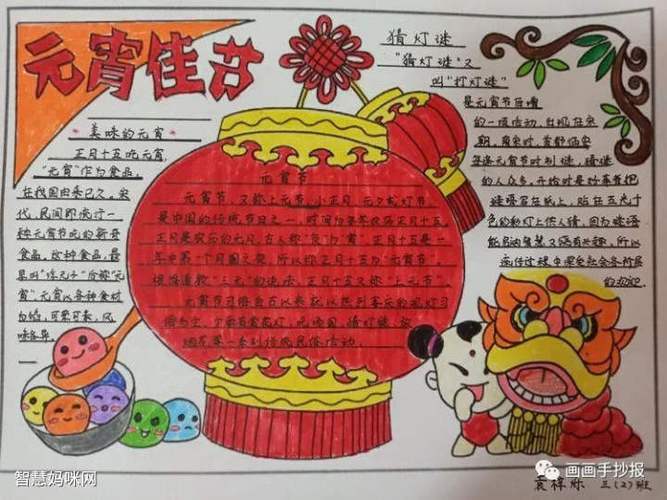 元宵佳节
美味的元宵
正月十五吃元宵,
"元宵"作为食品,
在我国由来已久。宋
代,民间即流行一
种元宵节吃的新奇
食品。这种食品,最
早叫"浮元子"后称"元
宵",元宵以各种食材
为馅,可荤可素,风
味各异。
元宵节
元宵节,又称上元节、小正月、元夕或灯节,
是中国的传统节日之一,时间为每年农历正月十五。
正月是农历的元月,古人称"夜"为"宵",正月十五是一
年中第一个月圆之夜,所以称正月十五为"元宵节"。
根据道教"三元"的说法,正月十五又称"上元节"。
元宵节习俗自古以来就以热烈喜庆的观灯习
俗为主。
赏花灯、
猜灯谜、放
烟花等一系列传统民俗活动。
猜灯谜
"猜灯谜"又
叫"打灯谜"
是元宵节后增
的一项活动,出现在宋
朝。南宋时,首都临安
每逢元宵节时制谜,猜谜
的人众多。开始时是好事者把
谜语写在纸上,贴在五光十
色的彩灯上供人猜。因为谜语
能启迪智慧又饶有兴趣,所以
流传过程中深受社会各阶层
的欢迎
三(2)班
智慧妈咪网
画画手抄报